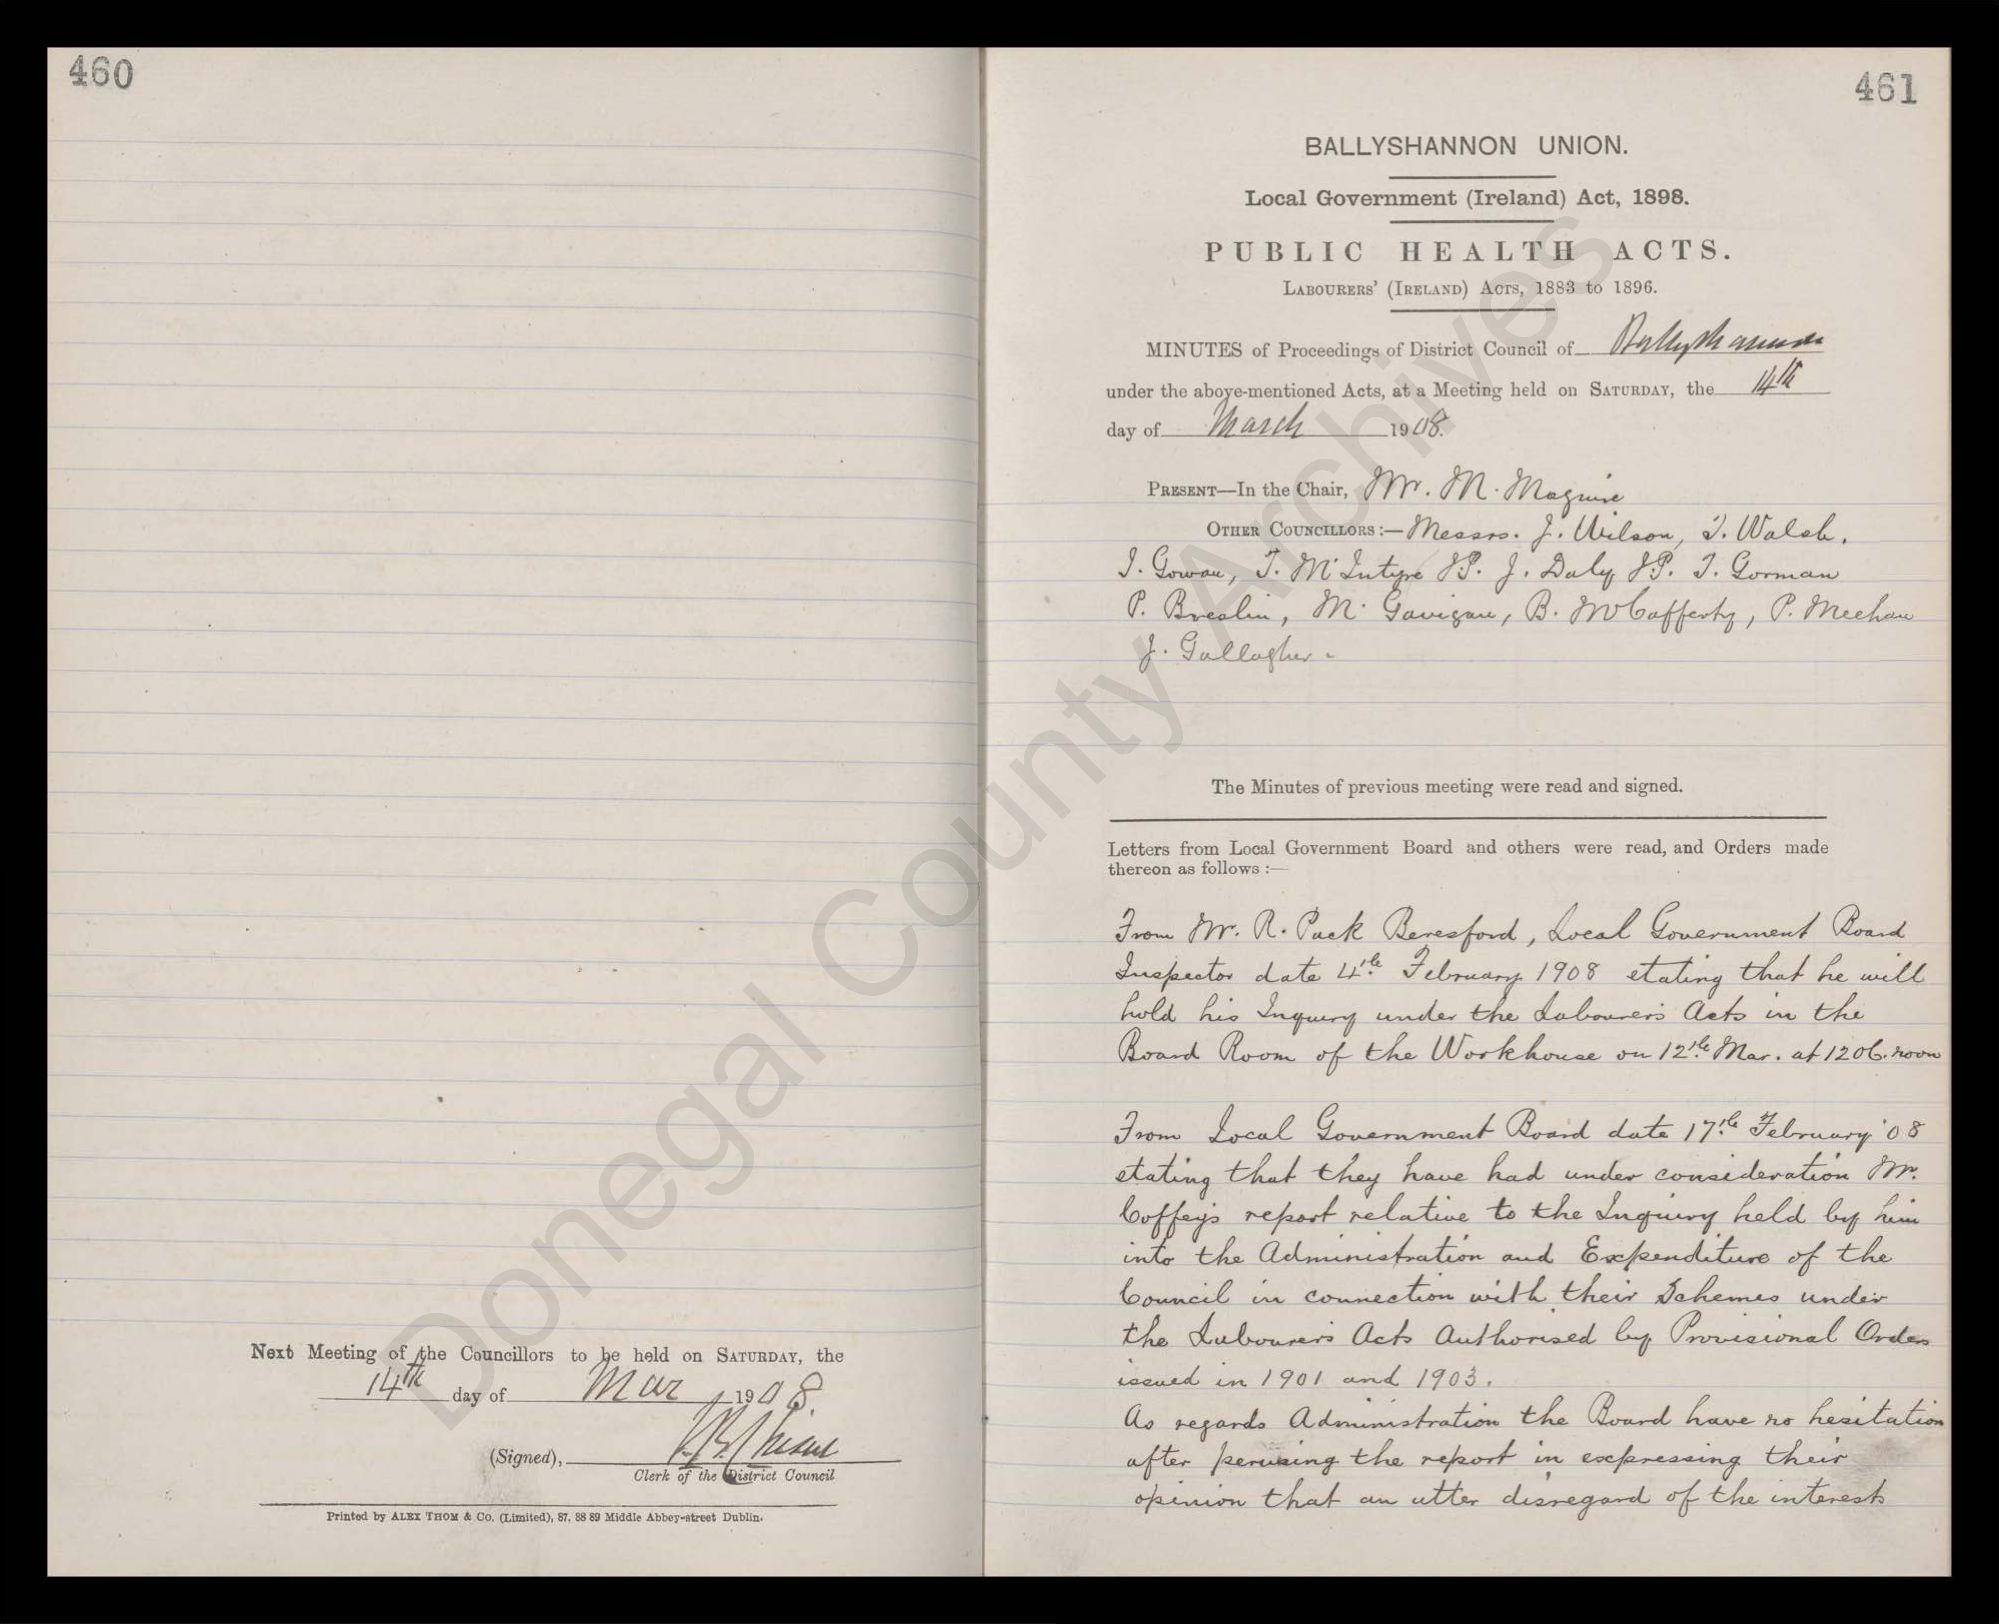 460
Next Meeting of the Councillors to be held on SATURDAY, the
14th day of Mar 1908.
(Signed),
Clerk of the District Council
Printed by ALEX THOM & Co. (Limited), 87, 88 89 Middle Abbey-street Dublin.
461
BALLYSHANNON UNION.
Local Government (Ireland) Act, 1898.
PUBLIC HEALTH ACTS.
LABOURERS' (IRELAND) ACTS, 1883 to 1896.
MINUTES of Proceedings of District Council of Ballyshannon
under the above-mentioned Acts, at a Meeting held on SATURDAY, the 14th
day of March 1908.
PRESENT—In the Chair, Mr. M. Maguire
OTHER COUNCILLORS:— Messrs. J. Wilson, T. Walsh,
J. Gowan, T. McIntyre J.P. J. Daly J.P. T. Gorman
P. Breslin, M. Gavigan, B. McCafferty, P. Meehan
J. Gallagher.
The Minutes of previous meeting were read and signed.
Letters from Local Government Board and others were read, and Orders made
thereon as follows:—
From Mr. R. Pack Beresford, Local Government Board
Inspector date 4th February 1908 stating that he will
hold his Inquiry under the Labourers Acts in the
Board Room of the Workhouse on 12th Mar. at 12 oC. noon
From Local Government Board date 17th February '08
stating that they have had under consideration Mr.
Coffey's report relative to the Inquiry held by him
into the Administration and Expenditure of the
Council in connection with their Schemes under
the Labourers Acts Authorised by Provisional Orders
issued in 1901 and 1903.
As regards Administration the Board have no hesitation
after perusing the report in expressing their
opinion that an utter disregard of the interests
Donegal County Archives